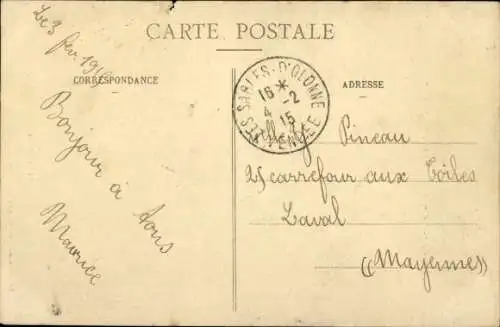 CARTE POSTALE
CORRESPONDANCE
ADRESSE
Le 3
fév 1915
Bonjour à tous
Maurice
LES SABLES-D'OLONNE
16 *
4 -2
15
VENDEE
Pineau
25 carrefour aux Toiles
Laval
(Mayenne)